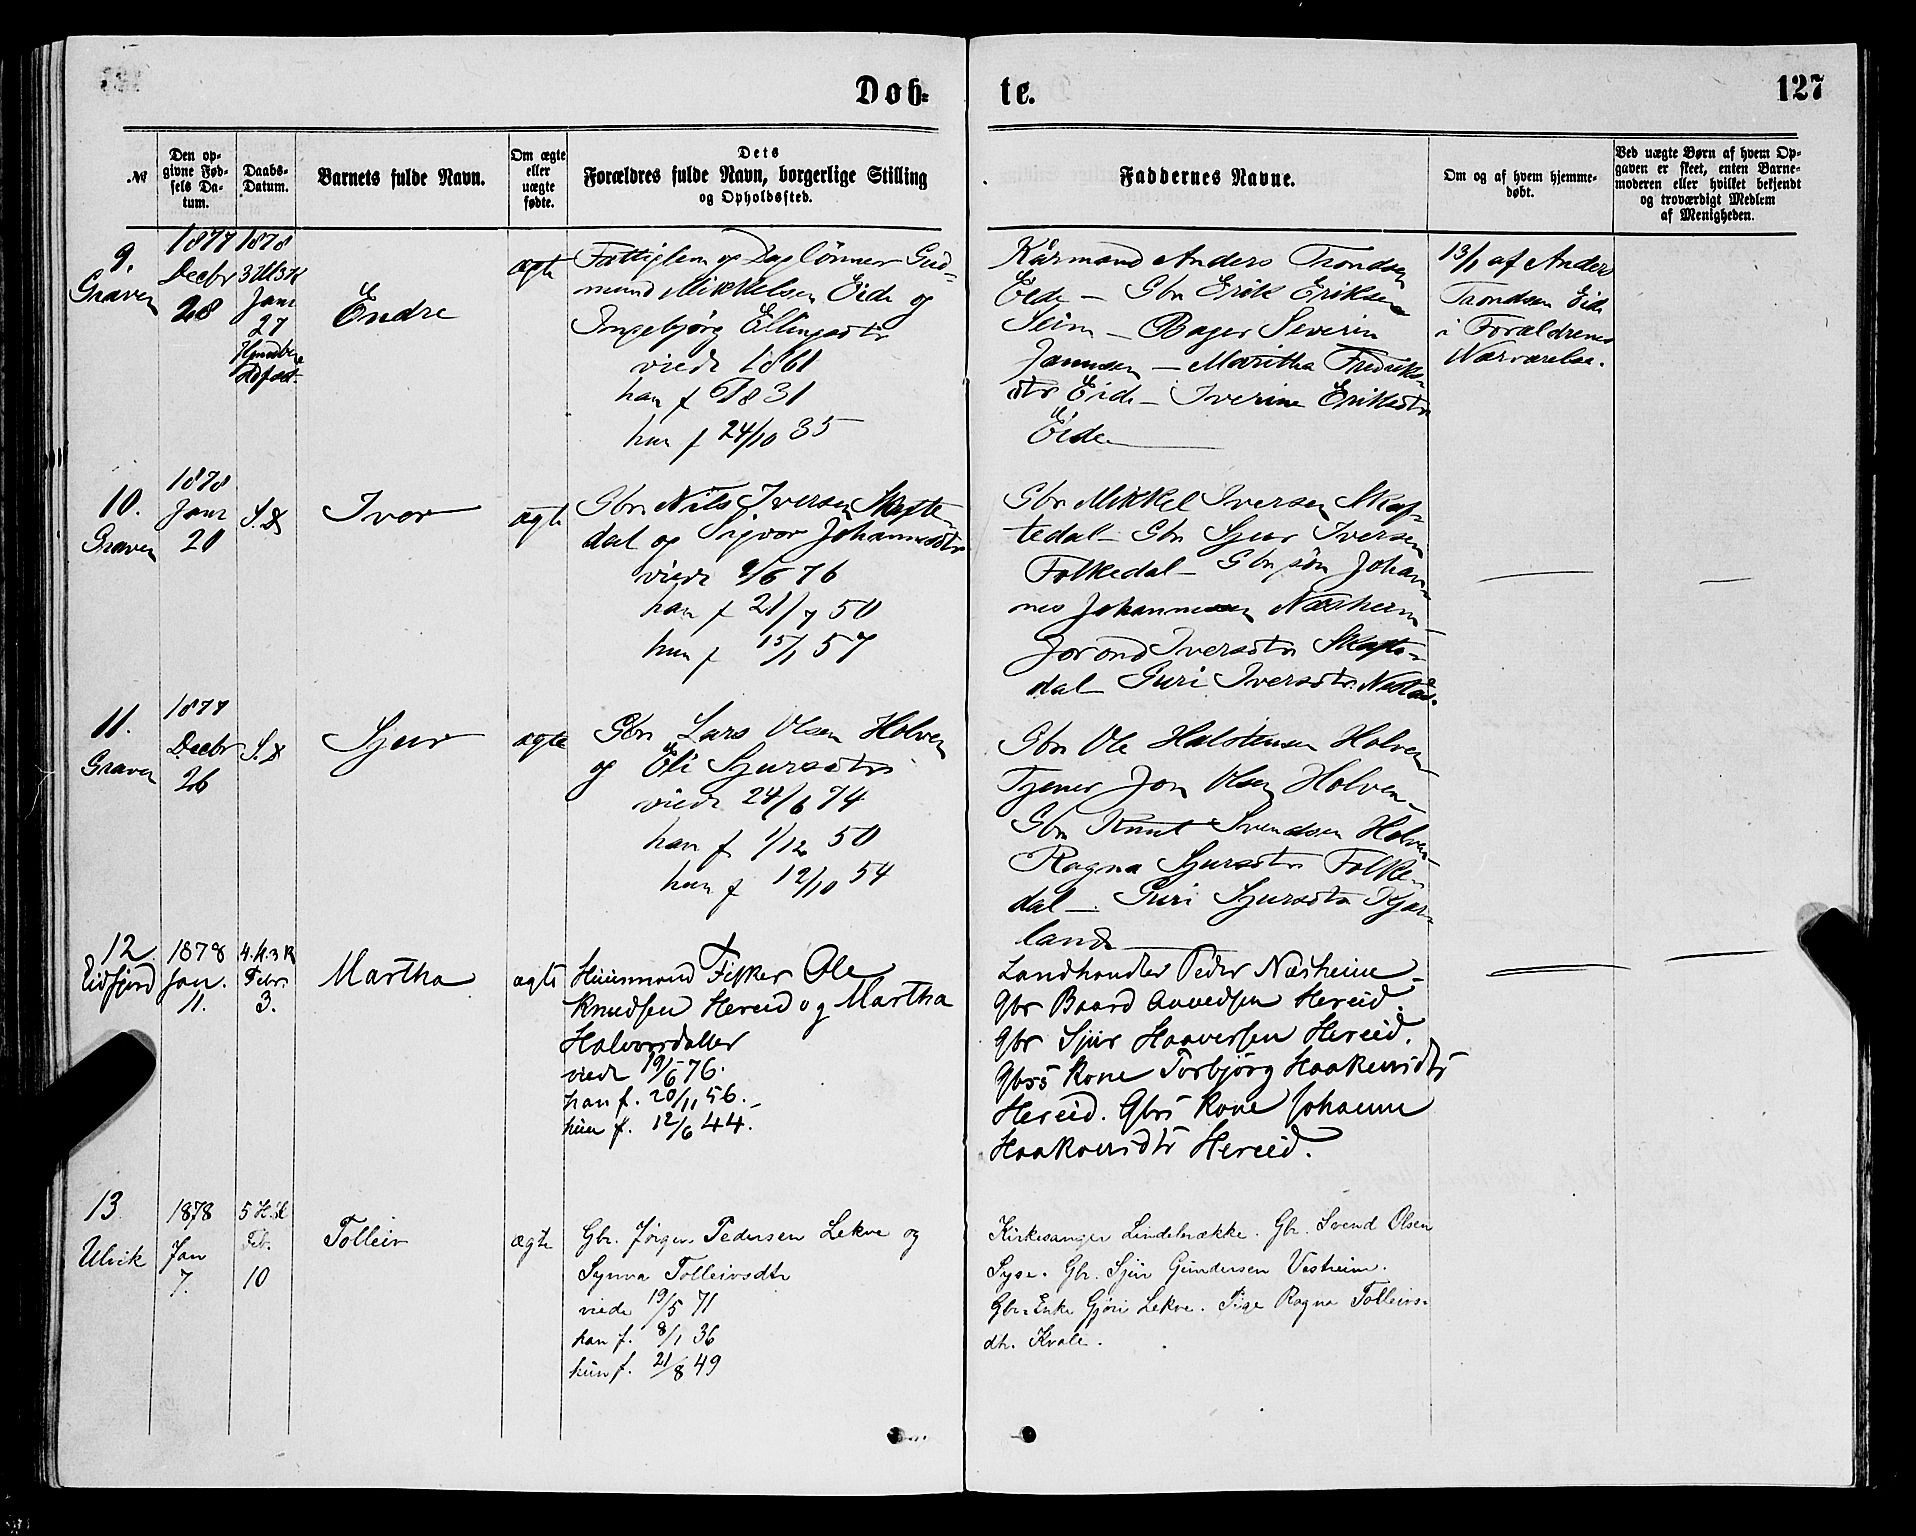 Døb=
te.
127
№
Den op-
givne Fød-
sels Da-
tum.
Daabs-
Datum.
Barnets fulde Navn.
Om ægte
eller
uægte
fødte.
Dets
Forældres fulde Navn, borgerlige Stilling
og Opholdssted.
Faddernes Navne.
Om og af hvem hjemme-
døbt.
Ved uægte Børn af hvem Op-
gaven er skeet, enten Barne-
moderen eller hvilket bekjendt
og troværdigt Medlem
af Menigheden.
9.
Graven
1877
Decbr
28
1878
Janr
27
Endre
ægte
Fattiglem og Daglönner Gud-
mund Mikkelsen Eide og
Ingebjørg Ellingsdtr
viede 1861
han f 1831
hun f 24/10 35
Kårmand Anders Trondsen
Eide - Gbr Erik Eriksen
Seim - Bager Severin
Jannsen - Maritha Fredriks-
dtr Eide - Iverine Eriksdtr
Eide
13/1 af Anders
Trondsen Eide
i Forældrenes
Nærværelse.
10.
Graven
1878
Janr
20
S.D
Ivar
ægte
Gbr Nils Iversen Skafte-
dal og Sigvor Johannesdtr
viede 2/6 76
han f 21/7 50
hun f 15/1 57
Gbr Mikkel Iversen Skaf-
tedal - Gbr Sjur Iversen
Folkedal - Gbr søn Johan-
nes Johannessen Næsheim -
Jorond Iversdtr Skafte-
dal - Guri Iversdtr
11.
Graven
1877
Decbr
26
S.D
Sjur
ægte
Gbr Lars Olsen Holven
og Eli Sjursdtr
viede 24/6 74
han f 1/12 50
hun f 12/10 54
Gbr Ole Halstensen Holven
Tjener Jon Olsen Holven -
Gbr Knut Svendsen Holven
Ragna Sjursdtr Folke-
dal - Guri Sjursdtr Kjær-
land
12
Eidfjord
1878
Jan.
11.
Febr.
3.
Martha
ægte
Huusmand Fisker Ole
Knudsen Hereid og Martha
Halvorsdatter
viede 19/6 76.
han f. 20/11 56.
hun f. 12/6 44.
Landhandler Peder Næsheim -
Gbr Baard Amedsen Hereid.
Gbr Sjur Haaversen Hereid.
Gbrs Kone Torbjørg Haakensdtr
Hereid. Gbrs Kone Johanne
Haakensdtr Hereid.
13
Ulvik
1878
Jan
7.
Feb.
10
Tolleiv
ægte
Gbr. Jørgen Pedersen Lekve og
Synva Tolleivsdtr
viede 19/5 71
han f. 8/1 36
hun f. 21/8 49
Kirkesanger Lindebrække. Gbr. Svend Olsen
Syse. Gbr. Sjur Gundersen Vestheim.
Gbr. Enke Gjøri Lekve. Pige Ragna Tolleivs-
dtr. Kvale.